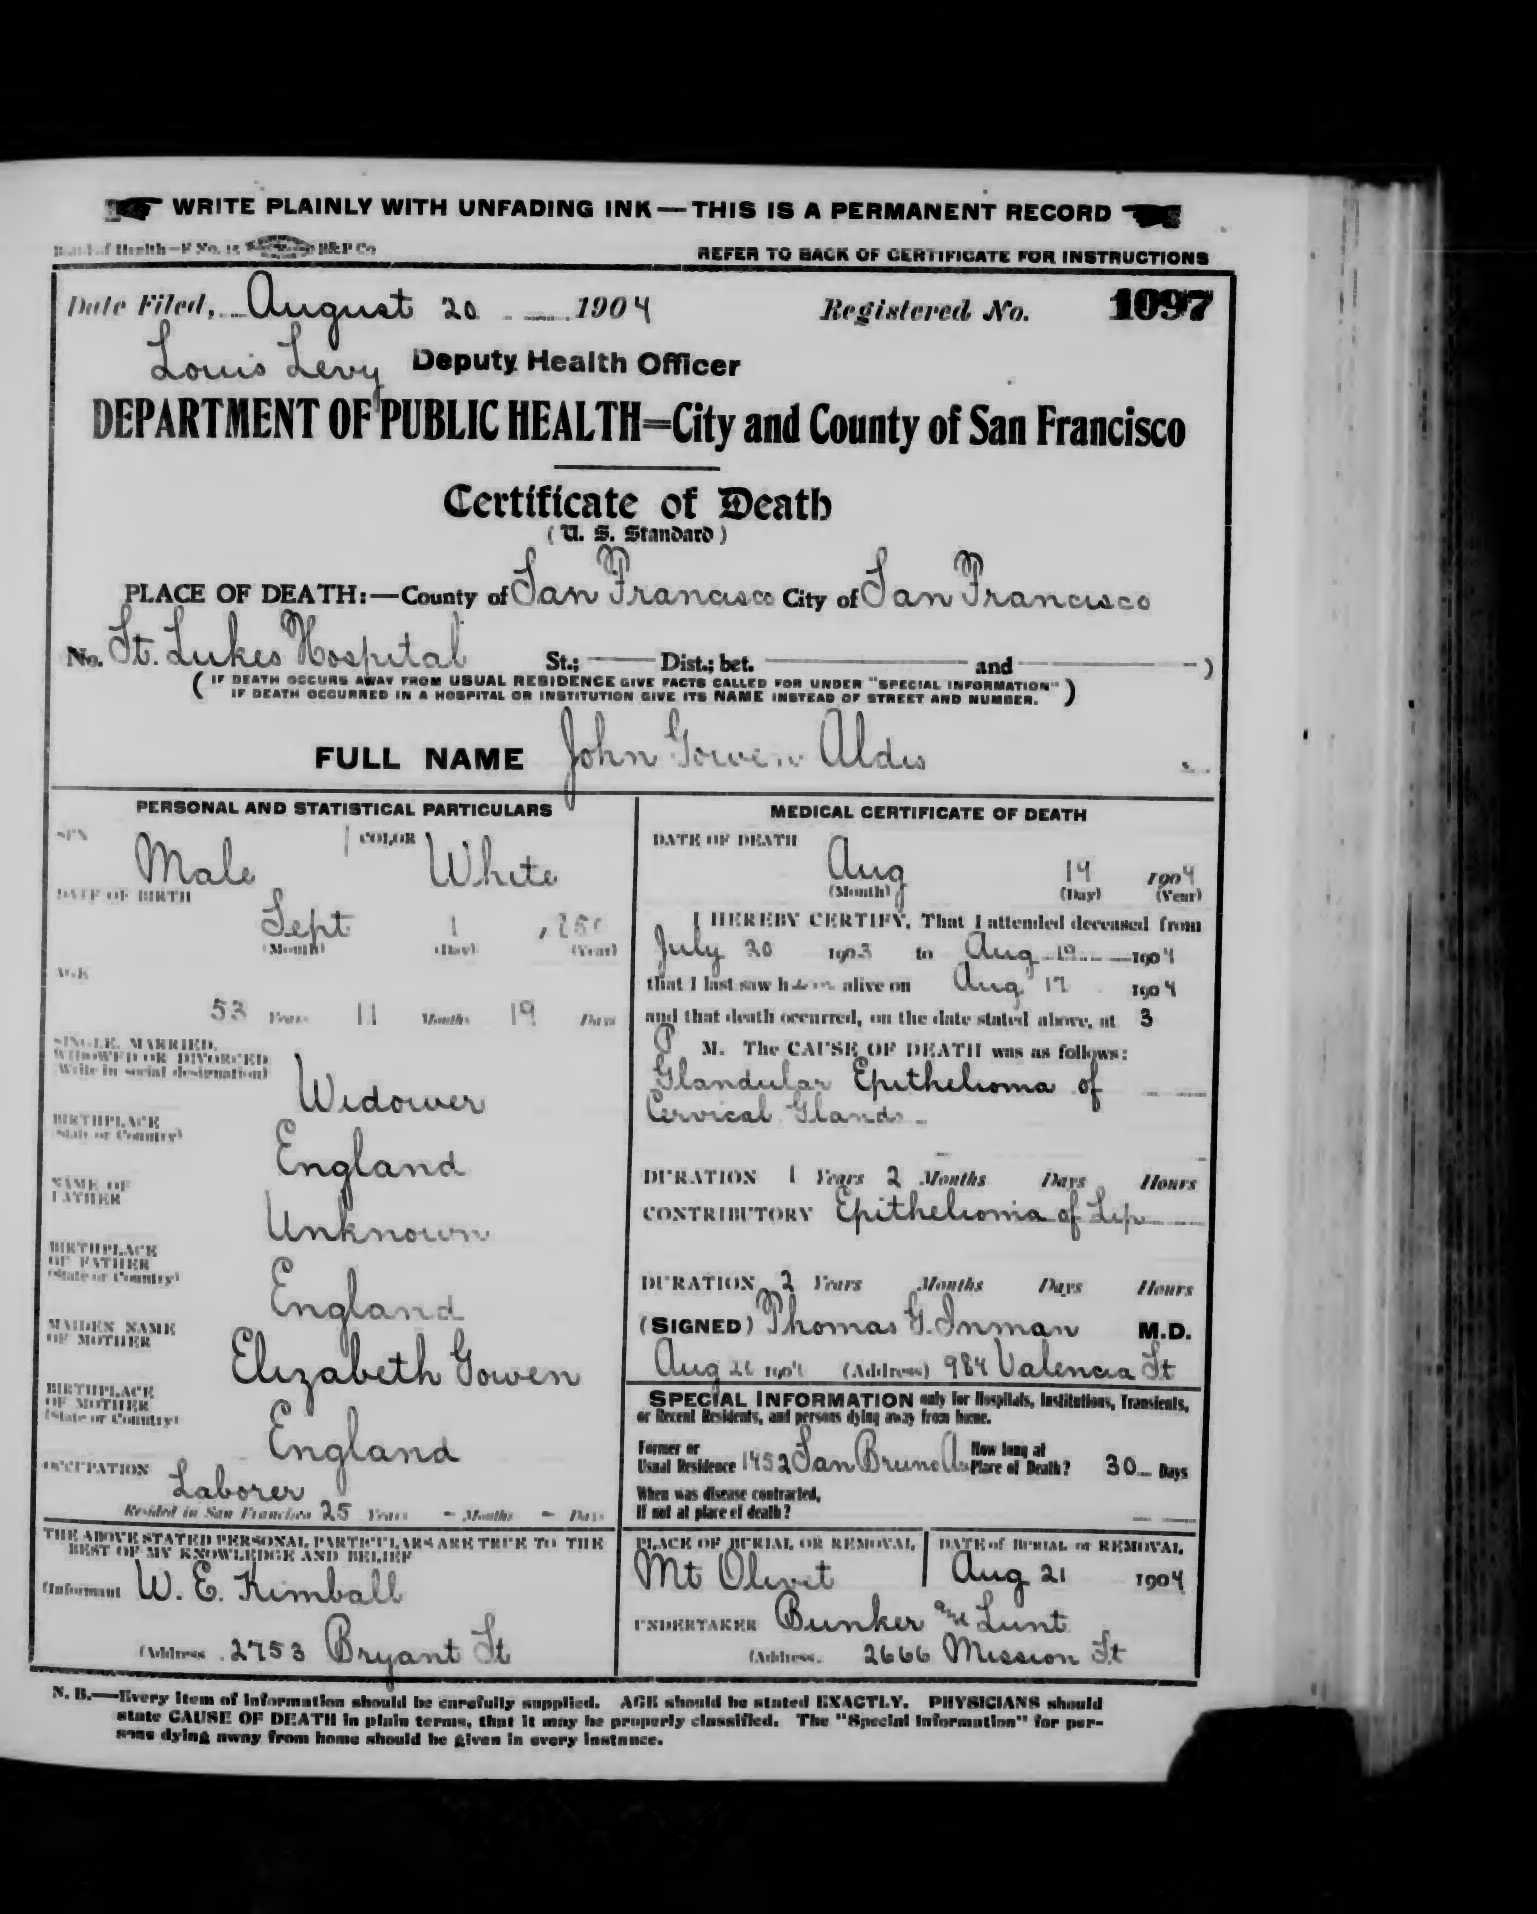 WRITE PLAINLY WITH UNFADING INK — THIS IS A PERMANENT RECORD
Board of Health—F No. 15 B&P Co
REFER TO BACK OF CERTIFICATE FOR INSTRUCTIONS
Date Filed, August 20 1904 Registered No. 1097
Louis Levy Deputy Health Officer
DEPARTMENT OF PUBLIC HEALTH=City and County of San Francisco
Certificate of Death
(U. S. Standard)
PLACE OF DEATH:—County of San Francisco City of San Francisco
No. St. Lukes Hospital St.; Dist.; bet. and )
( IF DEATH OCCURS AWAY FROM USUAL RESIDENCE GIVE FACTS CALLED FOR UNDER "SPECIAL INFORMATION" )
IF DEATH OCCURRED IN A HOSPITAL OR INSTITUTION GIVE ITS NAME INSTEAD OF STREET AND NUMBER.
FULL NAME John Gowen Aldis
PERSONAL AND STATISTICAL PARTICULARS
SEX Male COLOR White
DATE OF BIRTH
Sept 1
(Month) (Day) (Year)
AGE
53 Years 11 Months 19 Days
SINGLE, MARRIED,
WIDOWED OR DIVORCED
(Write in social designation)
Widower
BIRTHPLACE
(State or Country)
England
NAME OF
FATHER
Unknown
BIRTHPLACE
OF FATHER
(State or Country)
England
MAIDEN NAME
OF MOTHER
Elizabeth Gowen
BIRTHPLACE
OF MOTHER
(State or Country)
England
OCCUPATION
Laborer
Resided in San Francisco 25 Years - Months - Days
THE ABOVE STATED PERSONAL PARTICULARS ARE TRUE TO THE
BEST OF MY KNOWLEDGE AND BELIEF
(Informant W. E. Kimball
(Address 2753 Bryant St
MEDICAL CERTIFICATE OF DEATH
DATE OF DEATH
Aug 19 1904
(Month) (Day) (Year)
I HEREBY CERTIFY, That I attended deceased from
July 20 1903 to Aug 19 1904
that I last saw him alive on Aug 1904
and that death occurred, on the date stated above, at 3
P M. The CAUSE OF DEATH was as follows:
Glandular Epithelioma of
Cervical Glands
DURATION 1 Years 2 Months Days Hours
CONTRIBUTORY Epithelioma of Lip
DURATION 2 Years Months Days Hours
(SIGNED) Thomas G. Inman M.D.
Aug 20 1904 (Address) 984 Valencia St
SPECIAL INFORMATION only for Hospitals, Institutions, Transients,
or Recent Residents, and persons dying away from home.
Former or
Usual Residence 1452 San Bruno Av
How long at
Place of Death? 30 Days
When was disease contracted,
If not at place of death?
PLACE OF BURIAL OR REMOVAL
Mt Olivet
DATE of BURIAL or REMOVAL
Aug 21 1904
UNDERTAKER Bunker and Lunt
(Address. 2666 Mission St
N. B.—Every item of information should be carefully supplied. AGE should be stated EXACTLY. PHYSICIANS should
state CAUSE OF DEATH in plain terms, that it may be properly classified. The "Special Information" for per-
sons dying away from home should be given in every instance.